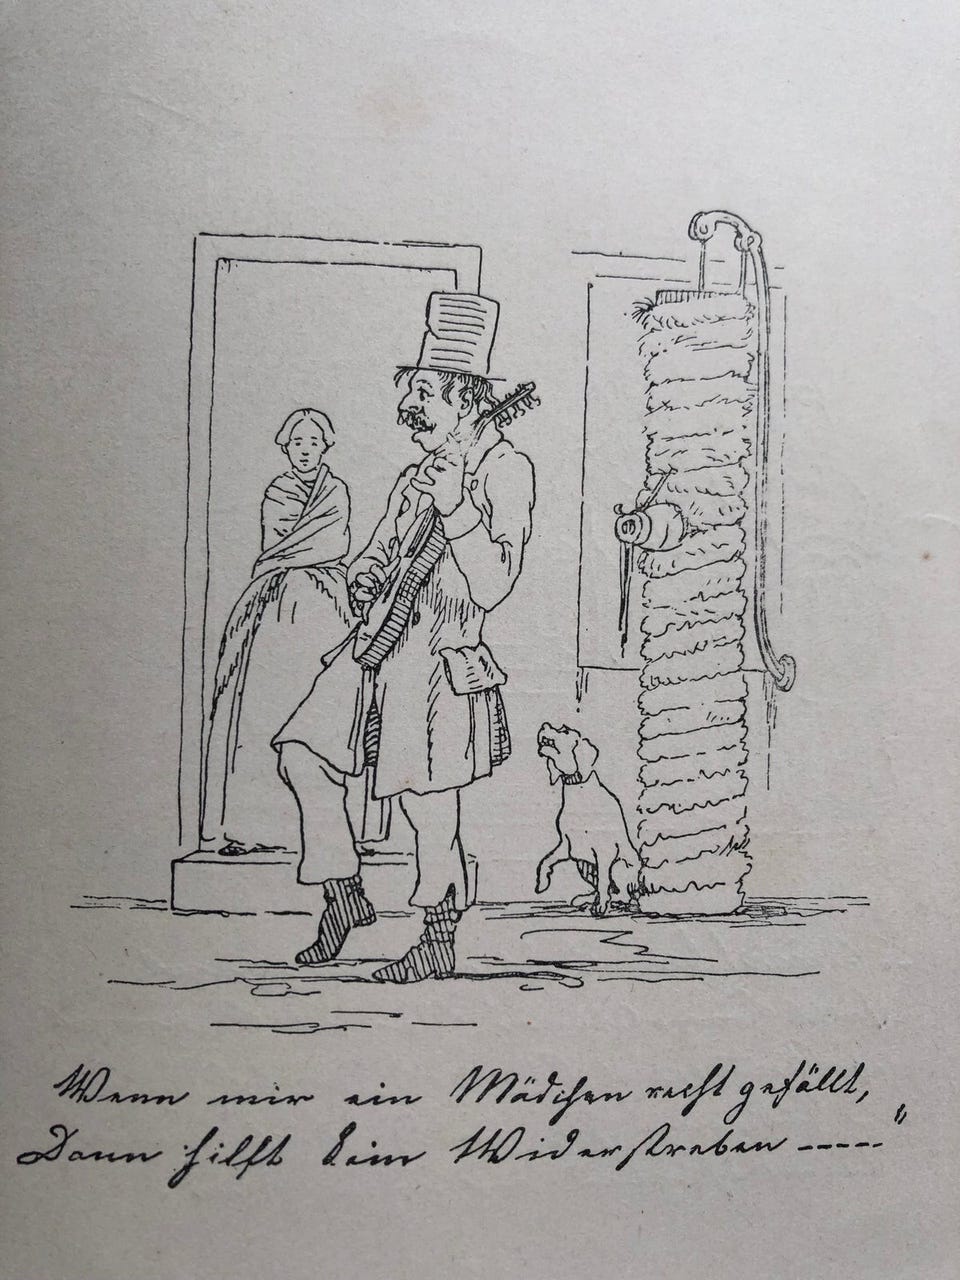 Wenn mir ein Mädchen recht gefällt,
Dann hilft kein Widerstreben -----"